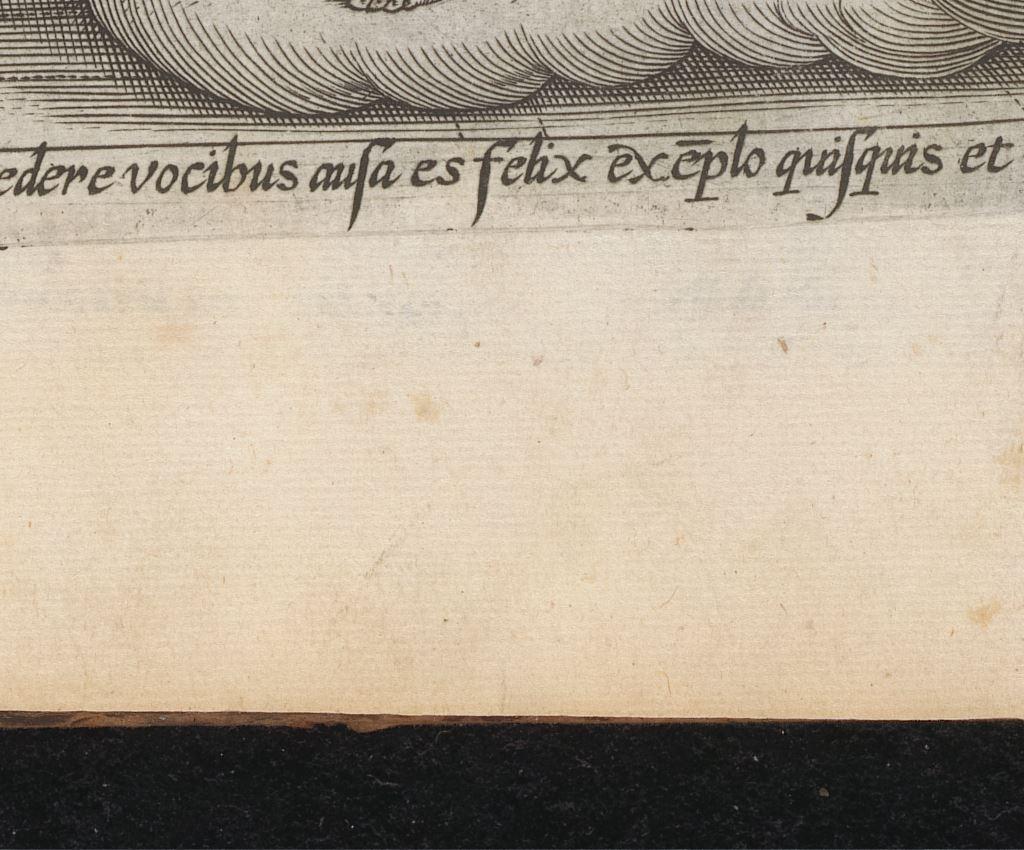 edere vocibus auſa es felix ēxēplo quiſquis et